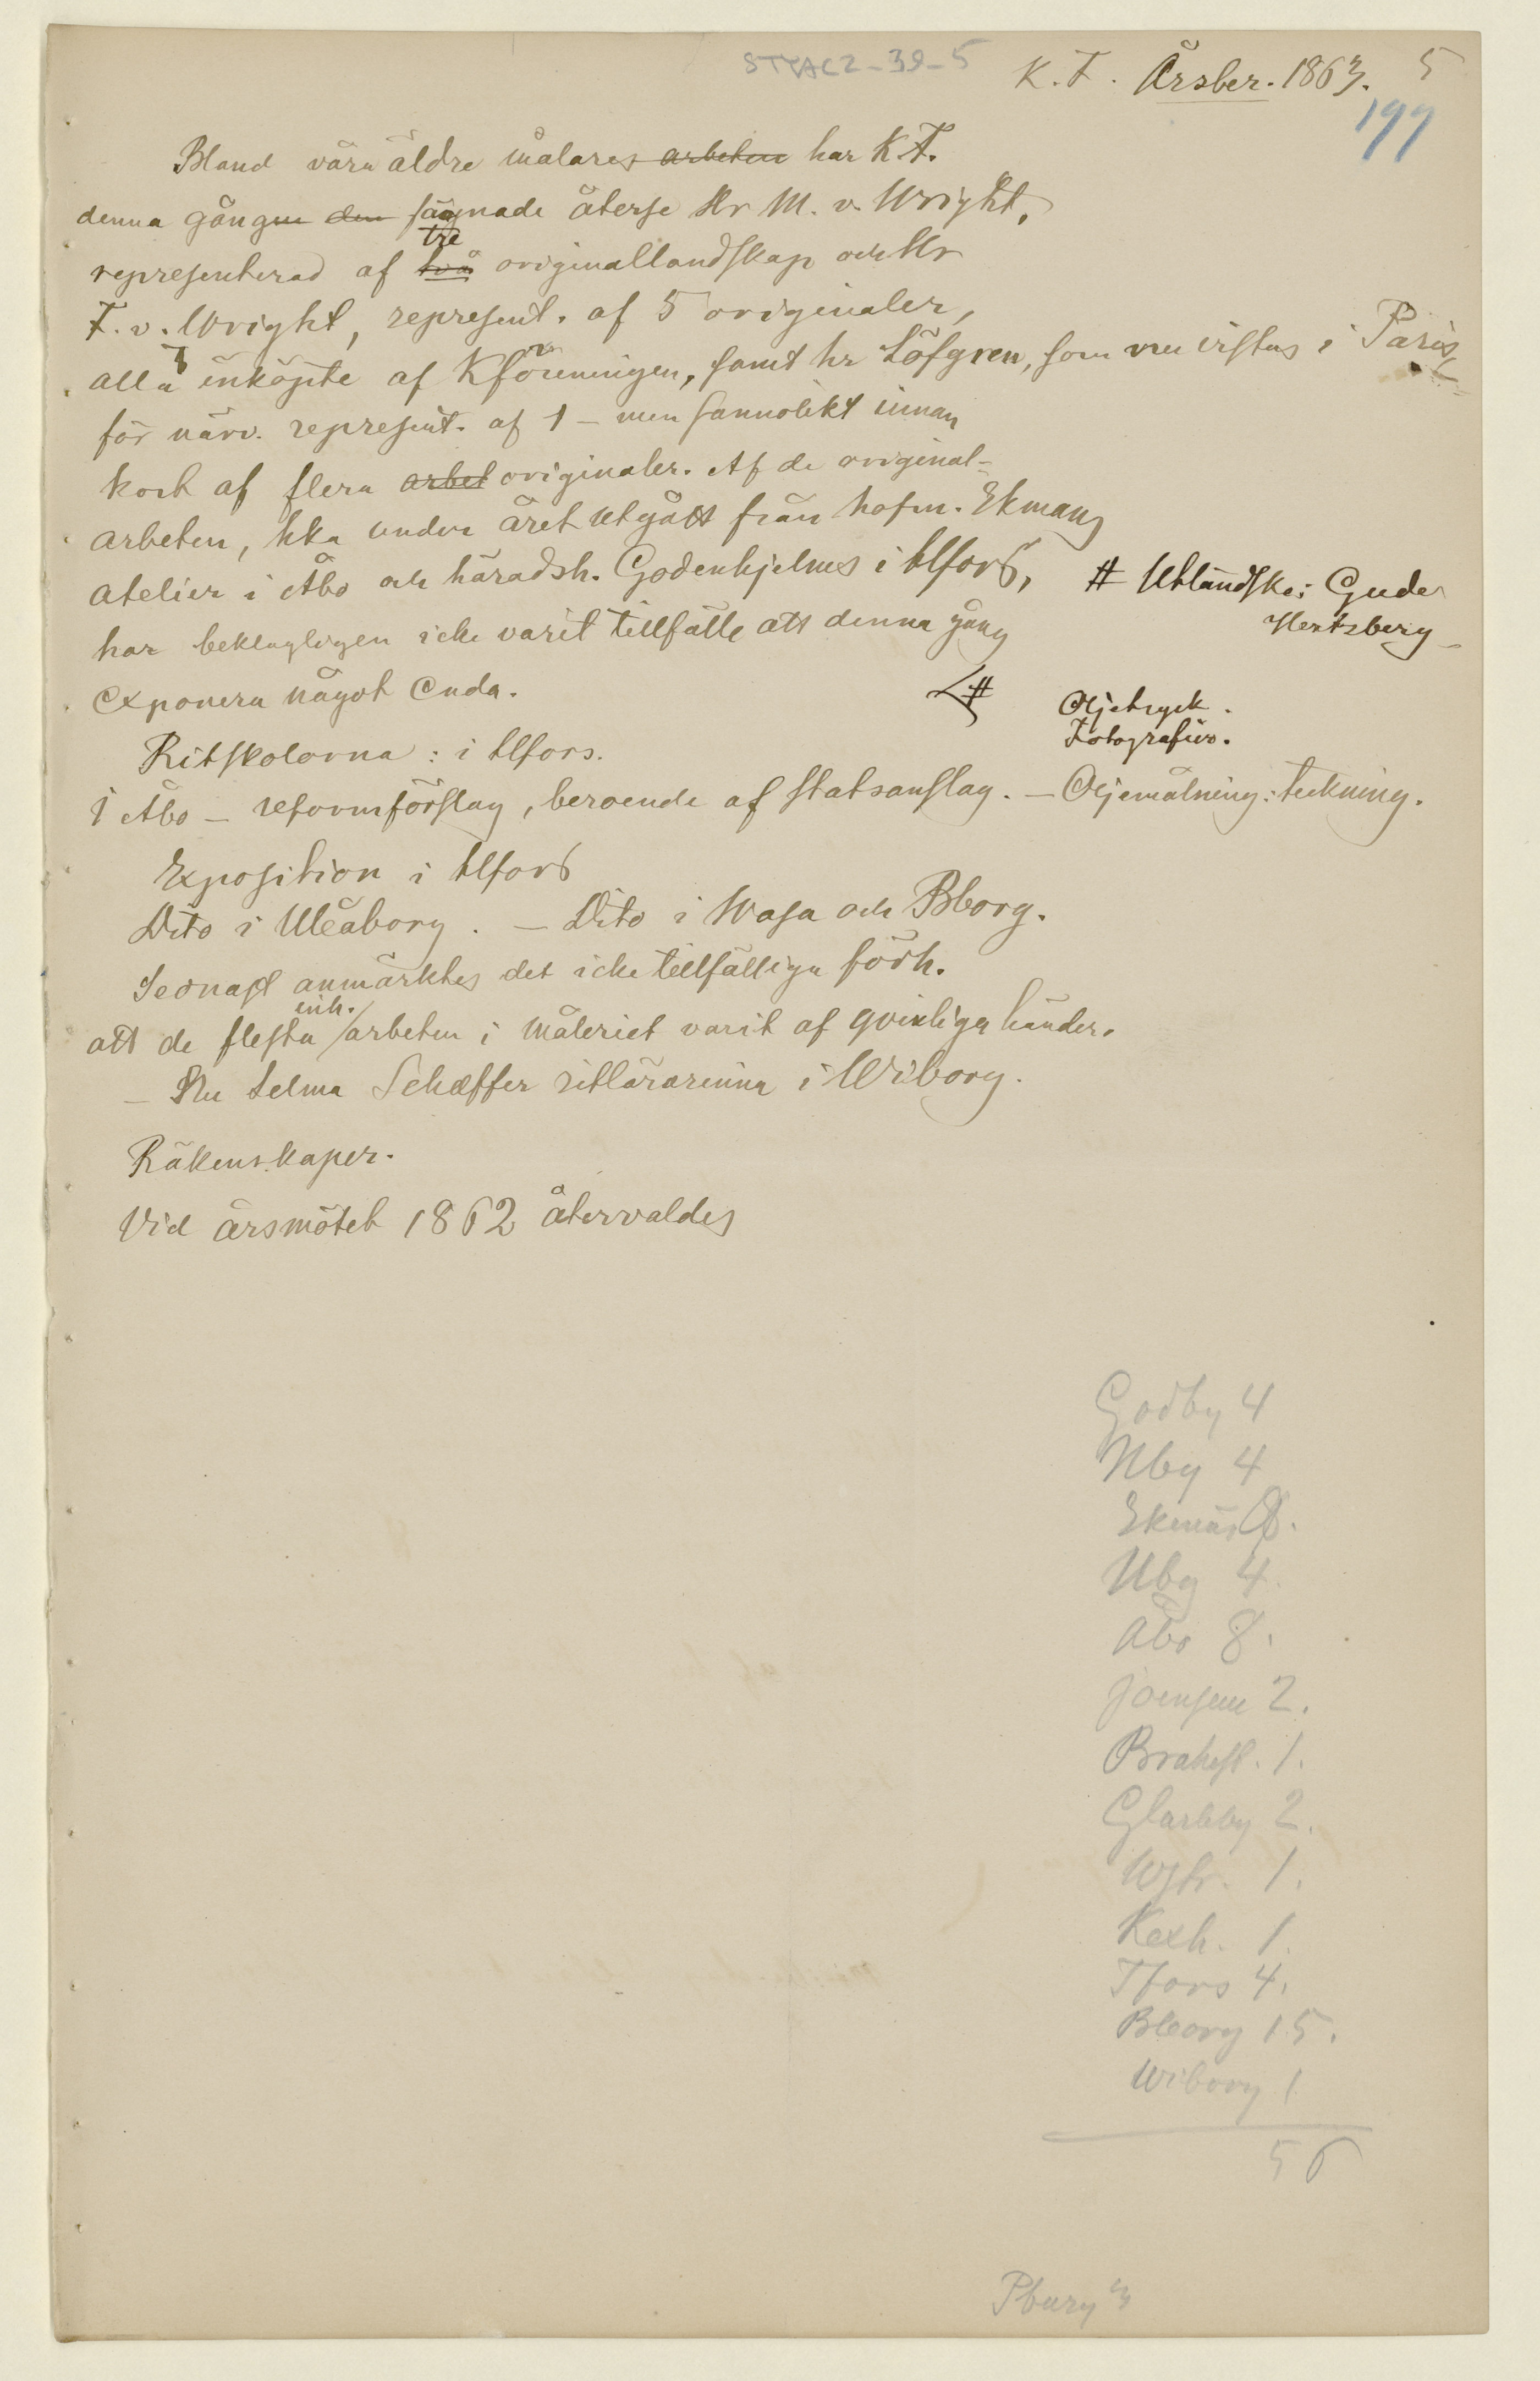 STYAC2-39-5
K. F. Årsber. 1863. 5
197
Bland våra äldre målares arbeten har K. F.
denna gången den fägnade återse Hr M. v. Wright,
tre
representerad af två originallandskap och Hr
F. v. Wright, represent. af 5 originaler,
alla inköpte af Kföreningen, samt hr Löfgren, som nu vistas i Paris,
för närv. represent. af 1 – men sannolikt innan
kort af flera arbet originaler. Af de original-
arbeten, hka under året utgått från hofm. Ekmans
atelier i Åbo och häradsh. Godenhjelms i Hfors,
har beklagligen icke varit tillfälle att denna gång
exponera något enda. #
# Utländske: Gude
Hertzberg
Oljetryck.
Fotografier.
Ritskolorna: i Hfors.
i Åbo – reformförslag, beroende af statsanslag. – Oljemålning: teckning.
Exposition i Hfors
Dito i Uleåborg. – Dito i Wasa och Bborg.
Senast anmärktes det icke tillfälliga förh.
inh.
att de flesta arbeten i måleriet varit af qvinliga händer.
– Nu Selma Schæffer ritlärarinna i Wiborg.
Räkenskaper.
Vid årsmötet 1862 återvaldes
Godby 4
Nby 4
Ekenäs 8.
Ubg 4.
Åbo 8.
Joensuu 2.
Brahest. 1.
Glarkby 2.
1.
Kexh. 1.
Tfors 4.
Bborg 15.
Wiborg 1
56
Pburg 3